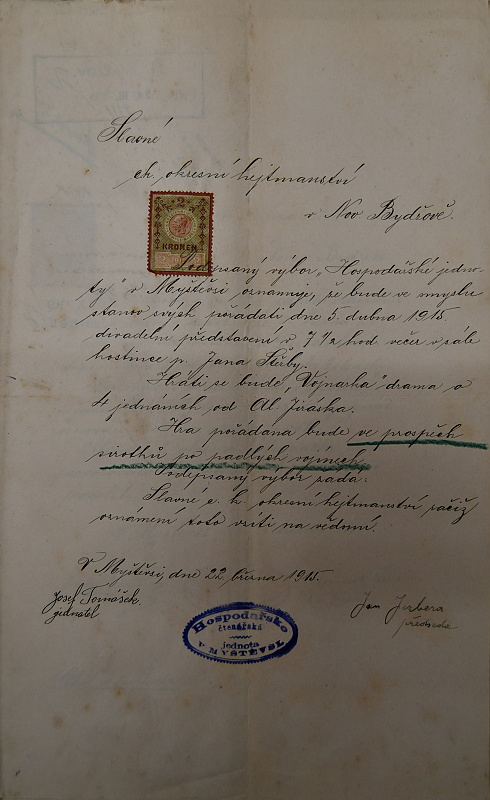 Slavné
ck. okresní hejtmanství
v Nov Bydžově.
2
KRONEN
Podepsaný výbor „Hospodářské jedno-
ty" v Myštěvsi oznamuje, že bude ve smyslu
stanov svých pořádati dne 5. dubna 1915
divadelní představení v 7 1/2 hod večer v sále
hostince p. Jana Štěrby.
Hráti se bude „Vojnarka" drama o
4 jednáních od Al. Jiráska.
Hra pořádana bude ve prospěch
sirotků po padlých vojínech.
Podepsaný výbor žádá:
Slavné c. k. okresní hejtmanství račiž
oznámení toto vzíti na vědomí.
V Myštěvsi, dne 22. března 1915.
Josef Tomášek
jednatel
Jan
předseda
Hospodářsko
čtenářská
jednota
V MYŠTĚVSI.